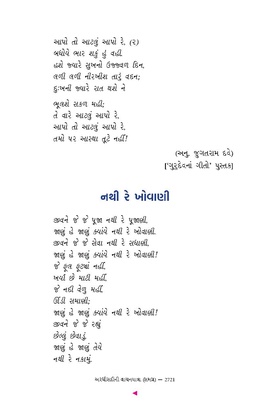 આપો તો આટલું આપો રે. (૨)
બધોયે ભાર શકું હું વહી
હશે જ્યારે સુખનો ઉજ્જ્વળ દિન,
લળી લળી નીરખીશ તારું વદન;
દુઃખની જ્યારે રાત થશે ને
ભૂલશે સકળ મહી;
તે વારે આટલું આપો રે,
આપો તો આટલું આપો રે.
તમો પર આસ્થા તૂટે નહીં!
(અનુ. જુગતરામ દવે)
['ગુરુદેવનાં ગીતો' પુસ્તક]
નથી રે ખોવાણી
જીવને જે જે પૂજા નથી રે પૂજાણી.
જાણું હે જાણું ક્યાંયે નથી રે ખોવાણી.
જીવને જે જે સેવા નથી રે સધાણી.
જાણું હે જાણું ક્યાંયે નથી રે ખોવાણી!
જે ફૂલ ફૂટ્યાં નહીં,
ખર્યાં છે માટી મહીં.
જે નદી વેળુ મહીં,
ઊંડી સમાણી;
જાણું હે જાણું ક્યાંયે નથી રે ખોવાણી!
જીવને જે જે રહ્યું
છેલ્લું છેવાડું,
જાણું હે જાણું તેયે
નથી રે નકામું.
— 2721